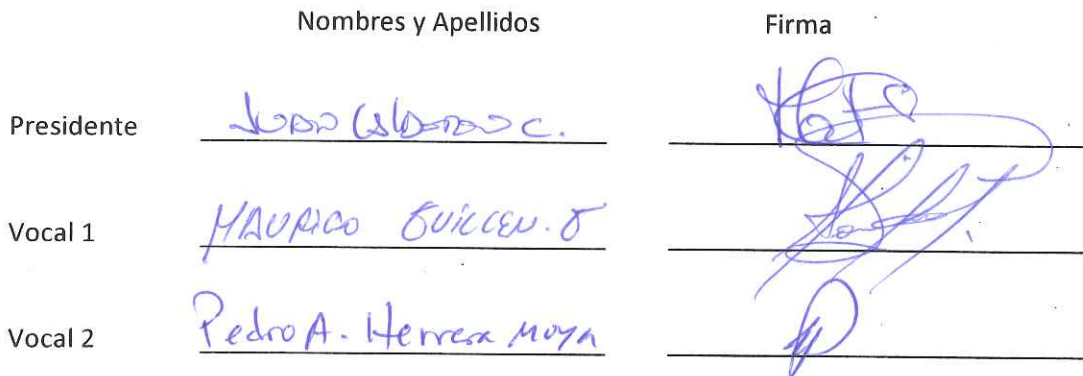 Nombres y Apellidos Firma
Presidente Juan Calderon C.
Vocal 1 MAURICO GUILLEN.
Vocal 2 Pedro A. Herrera Moya